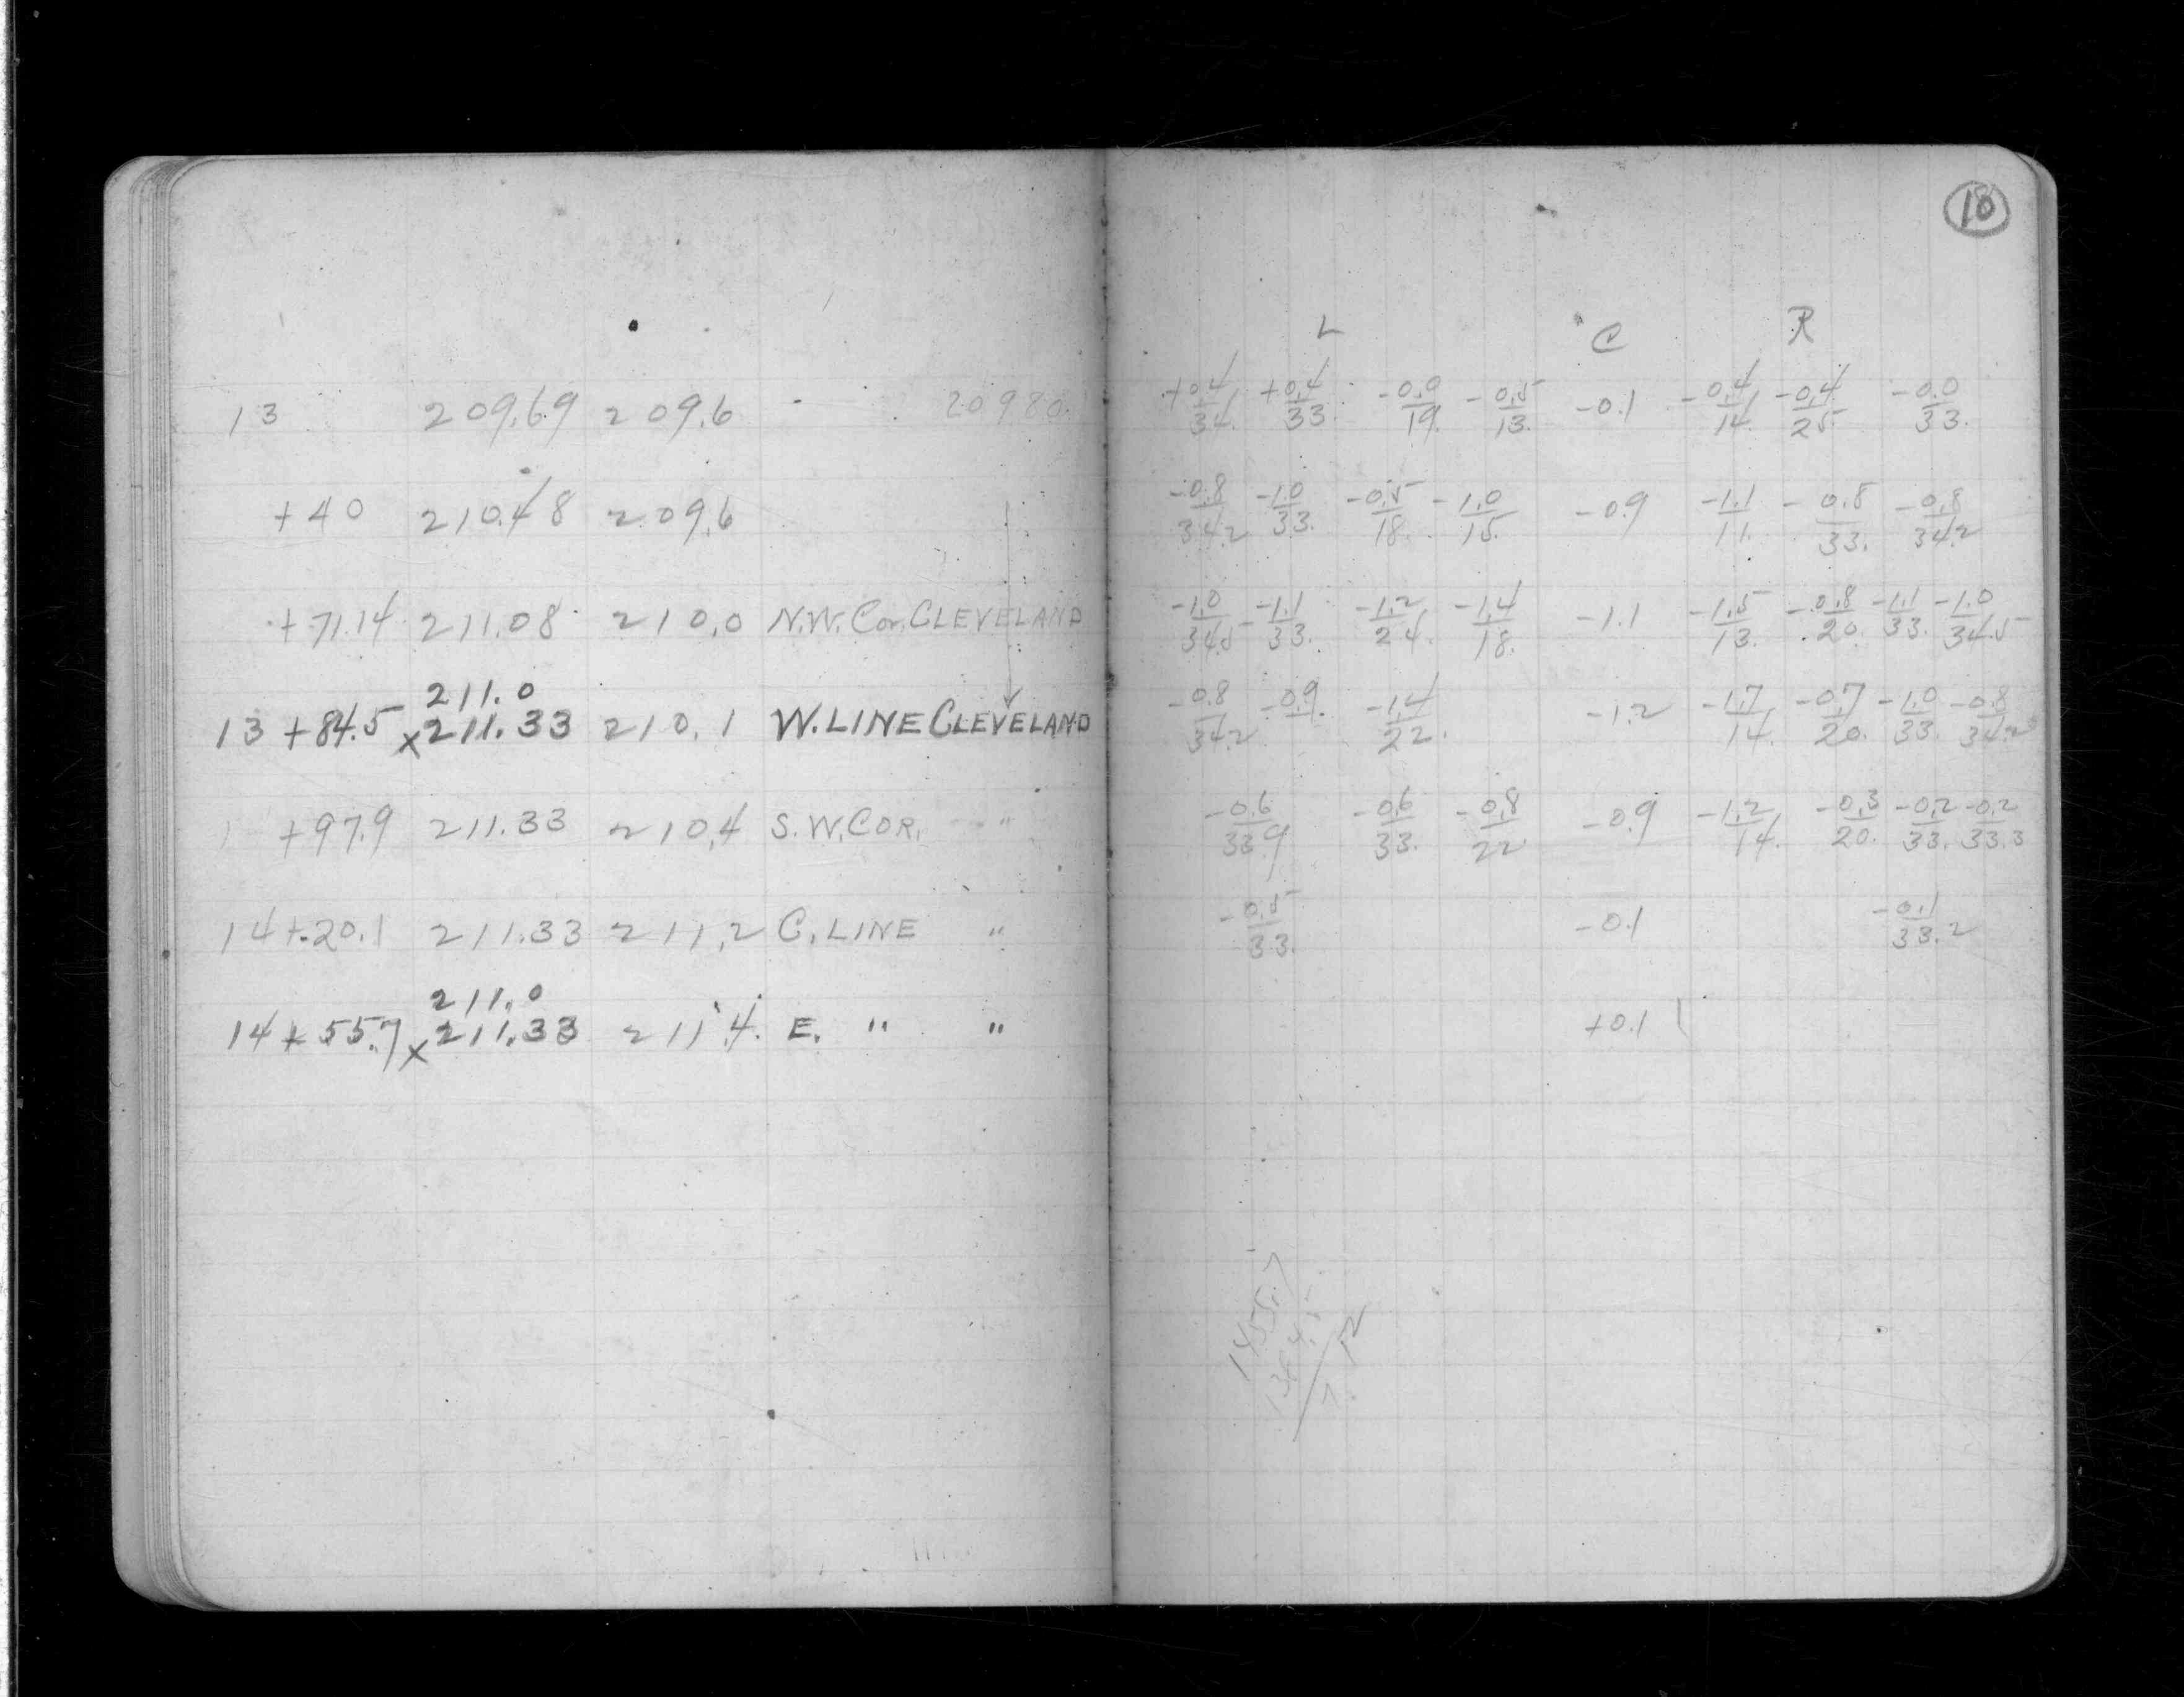 18
L C R
13 209.69 209.6 - 209.80 +0.4/34. +0.4/33 -0.0/19. -0.5/13. -0.1 -0.4/14. -0.4/25 -0.0/33.
+40 210.48 209.6 -0.8/34.2 -1.0/33. -0.5/18. -1.0/15. -0.9 -1.1/11. -0.8/33. -0.8/34.2
+71.14 211.08 210.0 N.W. Cor. CLEVELAND -1.0/34.5 -1.1/33. -1.2/24. -1.4/18. -1.1 -1.5/13. -0.8/20. -1.1/33. -1.0/34.5
211.0
13 +84.5 x211.33 210.1 W. LINE CLEVELAND -0.8/34.2 -0.9 -1.4/22. -1.2 -1.7/14. -0.7/20. -1.0/33. -0.8/34.2
+97.9 211.33 210.4 S.W. COR. " -0.6/33.9 -0.6/33. -0.8/22 -0.9 -1.2/14. -0.3/20. -0.2/33. -0.2/33.3
14+20.1 211.33 211.2 C. LINE " -0.5/33. -0.1 -0.1/33.2
211.0
14+55.7 x211.33 211.4. E. " " +0.1
1455.7